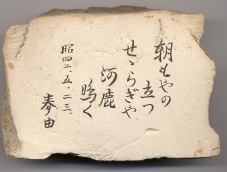 朝もやの
立つ
せゝらぎや
河鹿
鳴く
昭四二・五・二三、
春由